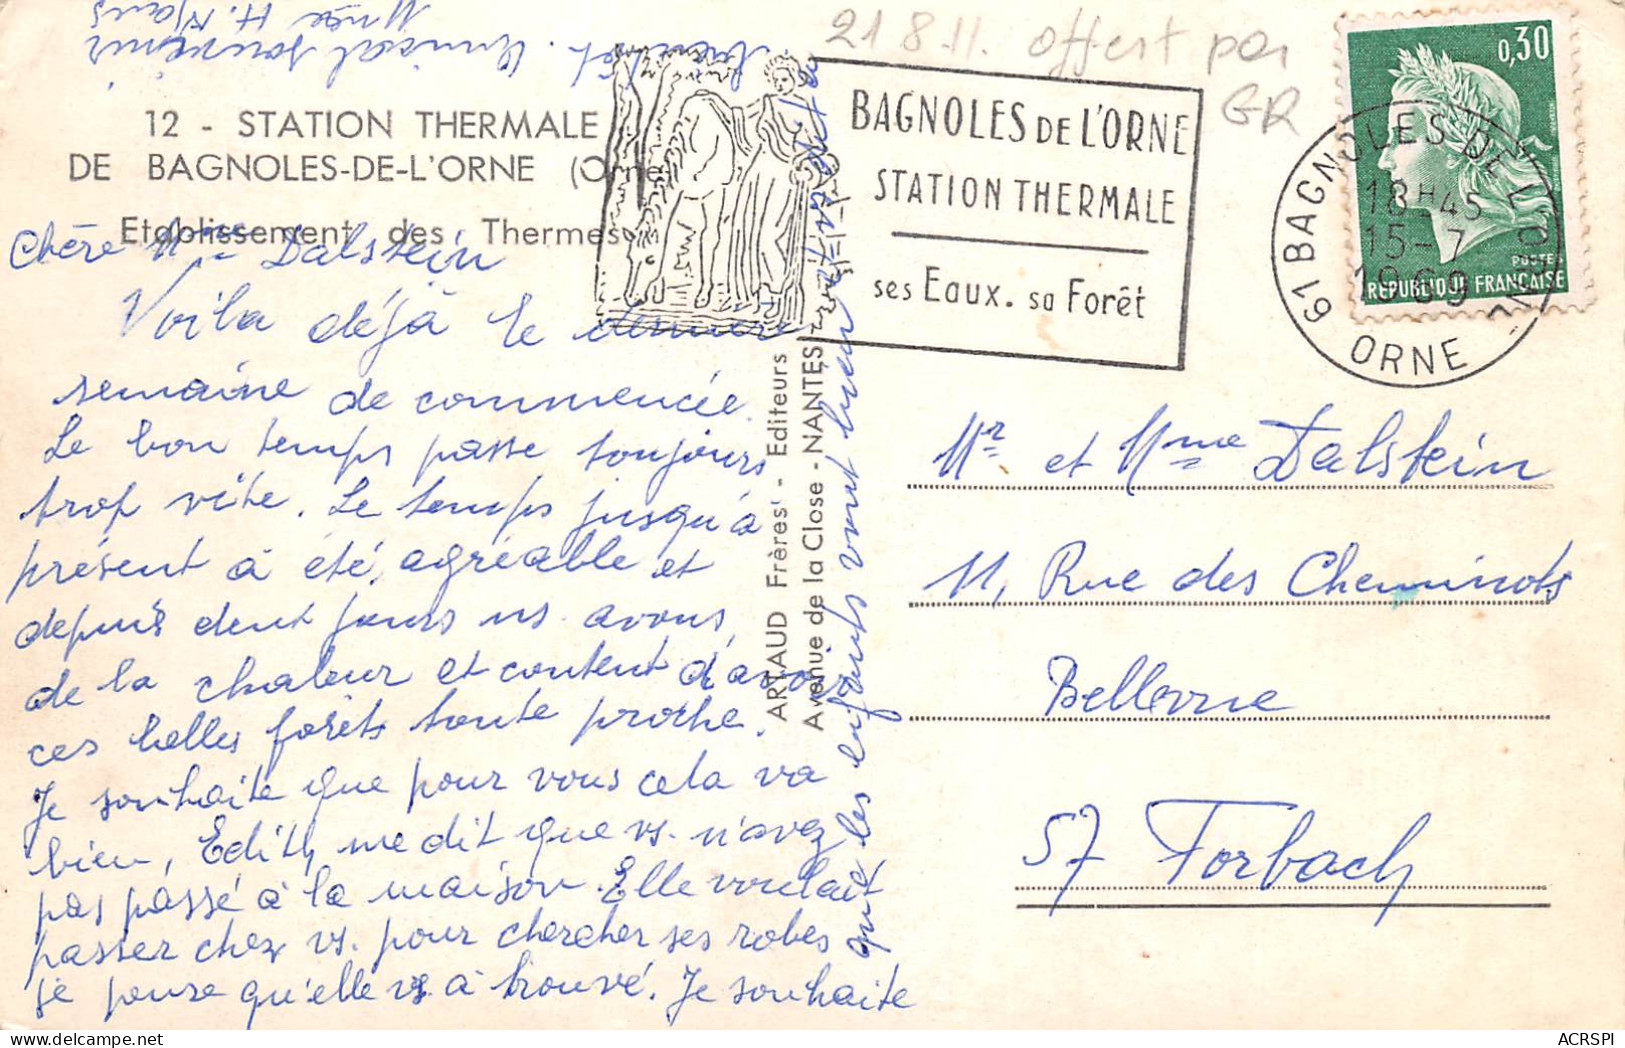 21.8.11. offert par
GR
12 - STATION THERMALE
DE BAGNOLES-DE-L'ORNE (Orne)
Etablissement des Thermes
Chère Mme Dalstein
Voila déjà le dernière
semaine de commencée.
Le bon temps passe toujours
trop vite. Le temps jusqu'à
présent à été agréable et
depuis deux jours ns. avons
de la chaleur et content d'avoir
ces belles forêts toute proche.
Je souhaite que pour vous cela va
bien, Edith me dit que vs. n'avez
pas passé à la maison. Elle voulait
passer chez vs. pour chercher ses robes
je pense qu'elle vs a trouvé. Je souhaite
que les enfants vont bien
Amical souvenir
Mme H.
ARTAUD Frères - Editeurs
Avenue de la Close - NANTES
BAGNOLES DE L'ORNE
STATION THERMALE
ses Eaux. sa Forêt
61 BAGNOLES-DE-L'ORNE
18H45
15-7
1969
ORNE
0,30
POSTES
REPUBLIQUE FRANÇAISE
Mr et Mme Dalstein
11, Rue des Cheminots
Bellevue
57 Forbach
ACRSPI